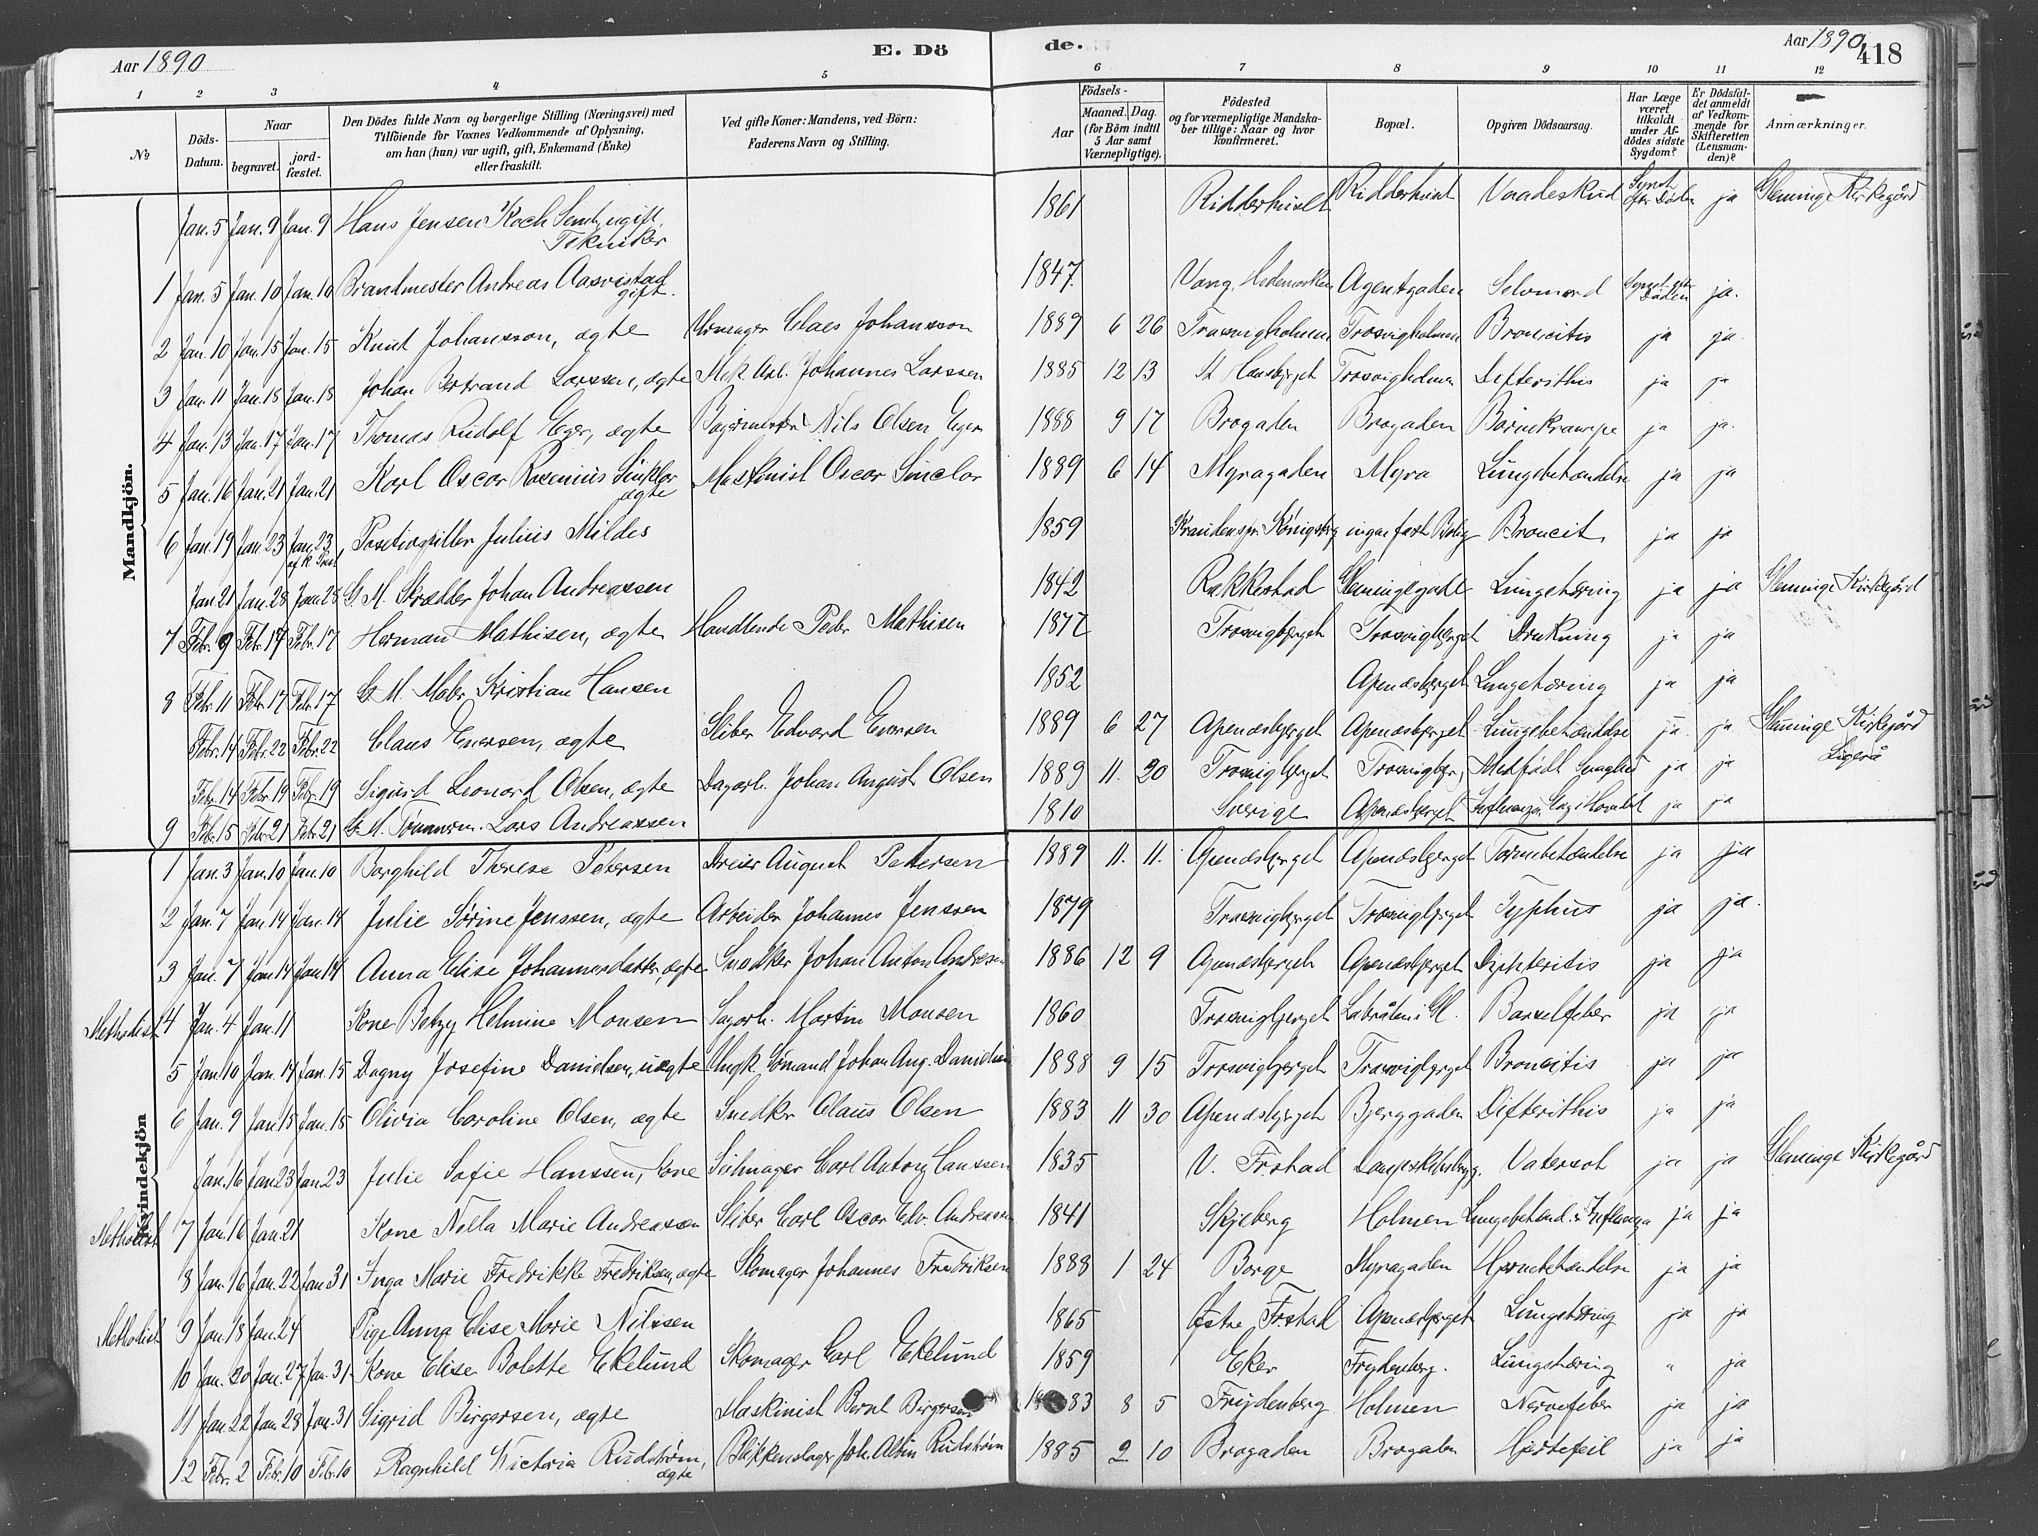 Aar 1890
E. Dö
de.
Aar 1890
418
1 2 3 4 5 6 7 8 9 10 11 12
No
Döds-Datum.
Naar
begravet.
jord-fæstet.
Den Dödes fulde Navn og borgerlige Stilling (Næringsvei) med
Tilföiende for Voxnes Vedkommende af Oplysning,
om han (hun) var ugift, gift, Enkemand (Enke)
eller fraskilt.
Ved gifte Koner: Mandens, ved Börn:
Faderens Navn og Stilling.
Födsels-
Aar
Maaned.
Dag.
(for Börn indtil
5 Aar samt
Værnepligtige).
Födested
og for værnepligtige Mandska-
ber tillige: Naar og hvor
konfirmeret.
Bopæl.
Opgiven Dödsaarsag.
Har Læge
været
tilkaldt
under Af-
dödes sidste
Sygdom?
Er Dödsfal-
det anmeldt
af Vedkom-
mende for
Skifteretten
(Lensman-
den)?
Anmærkninger.
Mandkjön.
Jan. 5 Jan. 9 Jan. 9 Hans Jensen Koch ugift, Tekniker 1861 Ridderhuset Ridderhuset Vaadeskud Synet efter Döden ja Glemminge Kirkegård
1 Jan. 5 Jan. 10 Jan. 10 Brandmester Andreas Aasvistad gift. 1847. Vang, Hedemarken Agentgaden Selvmord Synet efter Döden ja.
2 Jan. 10 Jan. 15 Jan. 15 Knut Johansson, ægte Urmager Claes Johansson 1889 6 26 Trosvigholmen Trosvigholmen Broncitis ja ja.
3 Jan. 11 Jan. 18 Jan. 18 Johan Bertrand Larssen, ægte Mek. Arb. Johannes Larssen 1885 12 13 St. Hansbjerget Trosvigholmen Difterithis ja ja
4 Jan. 13 Jan. 17 Jan. 17 Thomas Rudolf Eger, ægte Bagermester Nils Olsen Eger 1888 9 17 Brogaden Brogaden Börnekrampe ja ja.
5 Jan. 16 Jan. 21 Jan. 21 Karl Oscar Rosenius Sinklar ægte Maskinist Oscar Sinclar 1889 6 14 Myragaden Myra Lungebetændelse ja ja
6 Jan. 19 Jan. 23 Jan. 23 Positivspiller Julius Mildes 1859 Königsberg ingen fast Bolig Broncit. ja ja
Jan. 21 Jan. 28 Jan. 28 G. M. Skrædder Johan Andreassen 1842 Rakkestad Glemmingegade Lungetæring ja ja Glemminge Kirkegård
7 Febr. 9 Febr. 17 Febr. 17 Herman Mathisen, ægte Handlende Peder Mathisen 1877 Trosvigbjerget Trosvigbjerget Drukning ja ja
8 Febr. 11 Febr. 17 Febr. 17 G. M. Maler Kristian Hansen 1852 Apenæsbjerget Lungetæring ja ja
Febr. 14 Febr. 22 Febr. 22 Claus Evensen, ægte Sliber Edvard Evensen 1889 6 27 Apenæsbjerget Apenæsbjerget Lungebetændelse ja ja Glemminge Kirkegård
Febr. 14 Febr. 19 Febr. 19 Sigurd Leonard Olsen, ægte Dagarb. Johan August Olsen 1889 11. 20 Trosvigbjerget Trosvigbjer, Medfödt Svaghed ja ja Ligeså
9 Febr. 15 Febr. 21 Febr. 21 G. M. Tömmerm. Lars Andreassen 1810 Sverige Apenæsbjerget Influenza, Slag i Hovedet ja ja
Kvindekjön
1 Jan. 3 Jan. 10 Jan. 10 Borghild Therese Petersen Dreier August Petersen 1889 11. 11. Apenæsbjerget Apenæsbjerget Tarmbetændelse ja ja
2 Jan. 7 Jan. 14 Jan. 14 Julie Sörine Jenssen, ægte Arbeider Johannes Jenssen 1879 Trosvigbjerget Trosvigbjerget Typhus ja ja.
3 Jan. 7 Jan. 14 Jan. 14 Anna Elise Johannesdatter, ægte Snedker Johan Anton Andresen 1886 12 9 Apenæsbjerget Apenæsbjerget Diphteritis ja ja
Methodist 4 Jan. 4 Jan. 11 Kone Betzy Helmine Monsen Sagarb. Martin Monsen 1860 Trosvigbjerget Labråten i Gl. Barselfeber ja ja
5 Jan. 10 Jan. 14 Jan. 15 Dagny Josefine Danielsen, uægte Ungk. Sömand Johan Aug. Danielsen 1888 9 15 Trosvigbjerget Trosvigbjerget Broncitis ja ja
6 Jan. 9 Jan. 15 Jan. 15 Olivia Caroline Olsen, ægte Snedkr Claus Olsen 1883 11 30 Apenæsbjerget Bjerggaden Difterithis ja ja
Jan. 16 Jan. 23 Jan. 23 Julie Sofie Hanssen, Kone Seilmager Carl Anton Hanssen 1835 V. Frstad Vatersot ja ja Glemminge Kirkegård
Methodist 7 Jan. 16 Jan. 21 Kone Nella Marie Andreassen Sliber Carl Oscar Edv. Andreassen 1841 Skjeberg Holmen Lungebetænd. i Influenza ja ja
8 Jan. 16 Jan. 22 Jan. 31 Inga Marie Fredrikke Fredriksen, ægte Skomager Johannes Fredriksen 1888 1 24 Borge Myragaden Hjernebetændelse ja ja
Methodist 9 Jan. 18 Jan. 24 Pige Anna Elise Marie Nilssen 1865 Østre Frstad Apenæsbjerget Lungetæring ja ja
10 Jan. 20 Jan. 27 Jan. 31 Kone Elise Bolette Ekelund Skomager Carl Ekelund 1859 Eker Frydenberg. Lungetæring " ja
11 Jan. 22 Jan. 28 Jan. 31 Sigrid Birgersen, ægte Maskinist Bernt Birgersen 1883 8 5 Frydenberg Holmen Nervefeber ja ja
12 Febr. 2 Febr. 10 Febr. 10 Ragnhild Victoria Rudström, ægte Blikkenslager Joh. Albin Rudström 1885 2 10 Brogaden Brogaden Hjertefeil ja ja